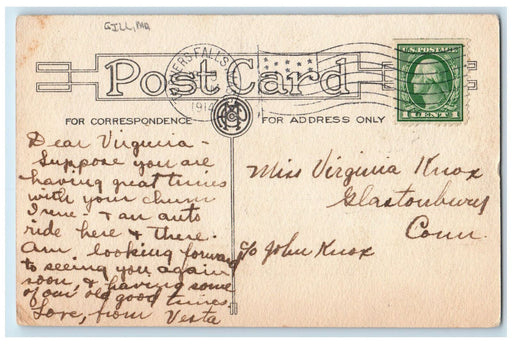 GILL, MA
Post Card
TURNERS FALLS
1914
U.S. POSTAGE
1 CENT 1
FOR CORRESPONDENCE
FOR ADDRESS ONLY
Dear Virginia -
Suppose you are
having great times
with your chum
Irene - & an auto
ride here & there.
Am looking forward
to seeing you again
soon, & having some
of our old good times.
Love, from Vesta
Miss Virginia Knox
Glastonbury
Conn.
c/o John Knox